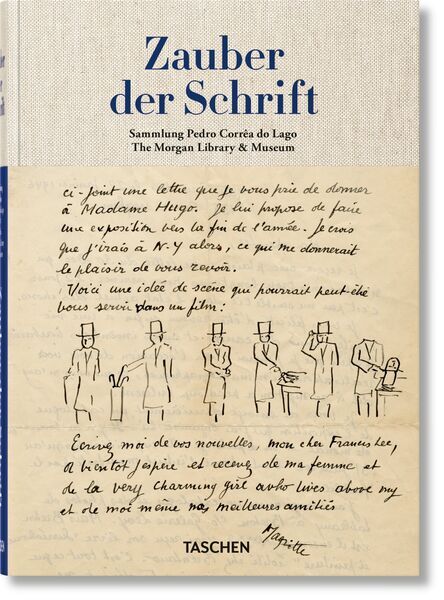 Zauber
der Schrift
Sammlung Pedro Corrêa do Lago
The Morgan Library & Museum
ci-joint une lettre que je vous prie de donner
à Madame Hugo. Je lui propose de faire
une exposition vers la fin de l'année. Je crois
que j'irais à N-Y alors, ce qui me donnerait
le plaisir de vous revoir.
Voici une idée de scène qui pourrait peut être
vous servir dans un film :
Ecrivez moi de vos nouvelles, mon cher Francis Lee,
A bientôt j'espère et recevez de ma femme et
de la very charming girl who lives above my
et de moi même nos meilleures amitiés
Magritte
TASCHEN